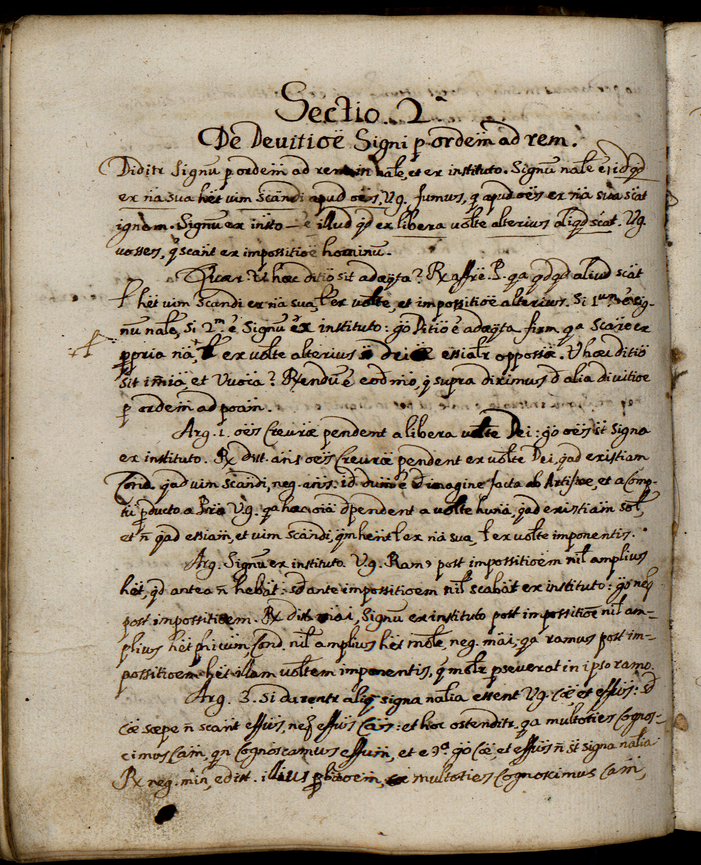 Sectio. 2ª
De Devitioē Signi p ordem̄ ad rem.
Diditr Signū p ordem̄ ad rem in nale, et ex instituto. Signū nale ē id qd
ex nā sua hēt vim scandi apud oēs, Vg. fumus, q apud oēs ex nā sua scat
ignem. Signū ex insto ē illud qd ex libera volte alterius aliqd scat. Vg.
vosses, q scant ex impossitioē hominū.
Quar? V hæc ditio sit adæqta? Rx affrē. P. qa qdqd aliud scat
l hēt vim scandi ex nā sua, l ex volte, et impossitioē alterius. Si 1ū ē sig-
nū nale, Si 2m ē Signū ex instituto: go ditio ē adæqta firm. qa scare ex
ppria nā, l ex volte alterius essialr oppossæ. V hæc ditio
sit im̄ia, et Vvoca? Rendū ē eod mo, q supra diximus d alia divitioē
p ordem̄ ad poam̄.
Arg. 1. oēs Creuræ pendent a libera volte Dei: go oēs st signa
ex instituto. Rx dist. ans oēs Creuræ pendent ex volte Dei, qad existiam
Conā. qad vim scandi, neg. ans. id dum ē d imagine facta ab Artifice, et a Comp-
pducto a Vg. qa hæc oia dpendent a volte huna, qad existiam̄ sol,
et n̄ qad essiam̄, et vim scandi, qm hent l ex nā sua, l ex volte imponentis.
Arg. Signū ex instituto. Vg. Ramus post impossitioēm nil amplius
hēt, qd antea n̄ hebat: sd ante impossitioem nil scabat ex instituto: go neq
post impossitioem. Rx dist. mai, Signū ex instituto post impossitioē nil am-
plius hēt Conā. nil amplius hēt mole, neg. mai, qa ramus post im-
possitioem hēt illam voltem imponentis, q molr pseverat in ipso ramo.
Arg. 3. Si darentr aliq signa nalia essent Vg. Cæ, et effūs: sd
Cæ sæpe n̄ scant effūs, neq effūs Cās: et hoc ostenditr, qa multoties Cognos-
cimus Cam, qn Cognoscamus effum, et e 9a. go Cæ, et effūs n̄ st signa nalia
Rx neg. min, et dist. illius pbaoēm, multoties Cognoscimus Cam,